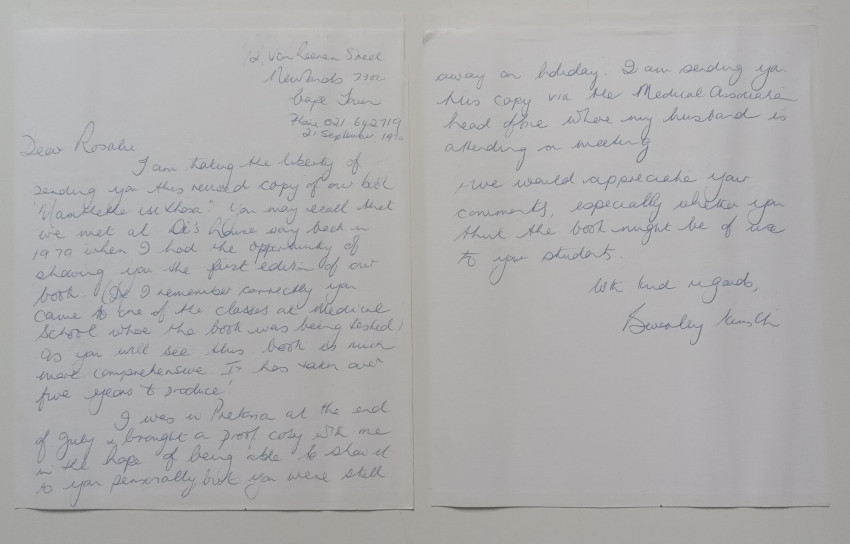 2, van Reenen Street
Newlands 7700
Cape Town
Phone 021 642719
21 September
Dear Rosalie
I am taking the liberty of
sending you this revised copy of our book
You may recall that
we met at Di's house way back in
1979 when I had the opportunity of
showing you the first edition of our
book. (If I remember correctly you
came to one of the classes at Medical
School where the book was being tested)
As you will see this book is much
more comprehensive. It has taken over
five years to produce!
I was in Pretoria at the end
of July & brought a proof copy with me
in the hope of being able to show it
to you personally but you were still
away on holiday. I am sending you
this copy via the Medical Association
head office where my husband is
attending a meeting
We would appreciate your
comments, especially whether you
think the book might be of use
to your students.
With kind regards,
Beverley